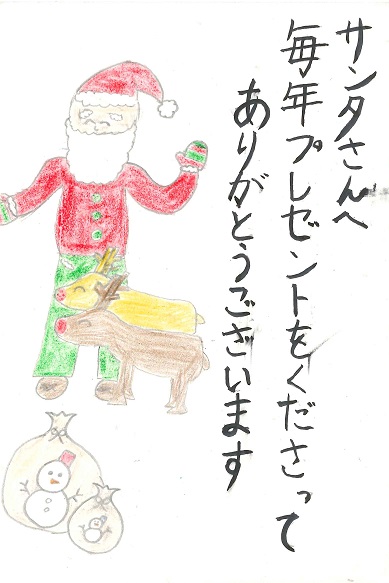 サンタさんへ
毎年プレゼントをくださって
ありがとうございます